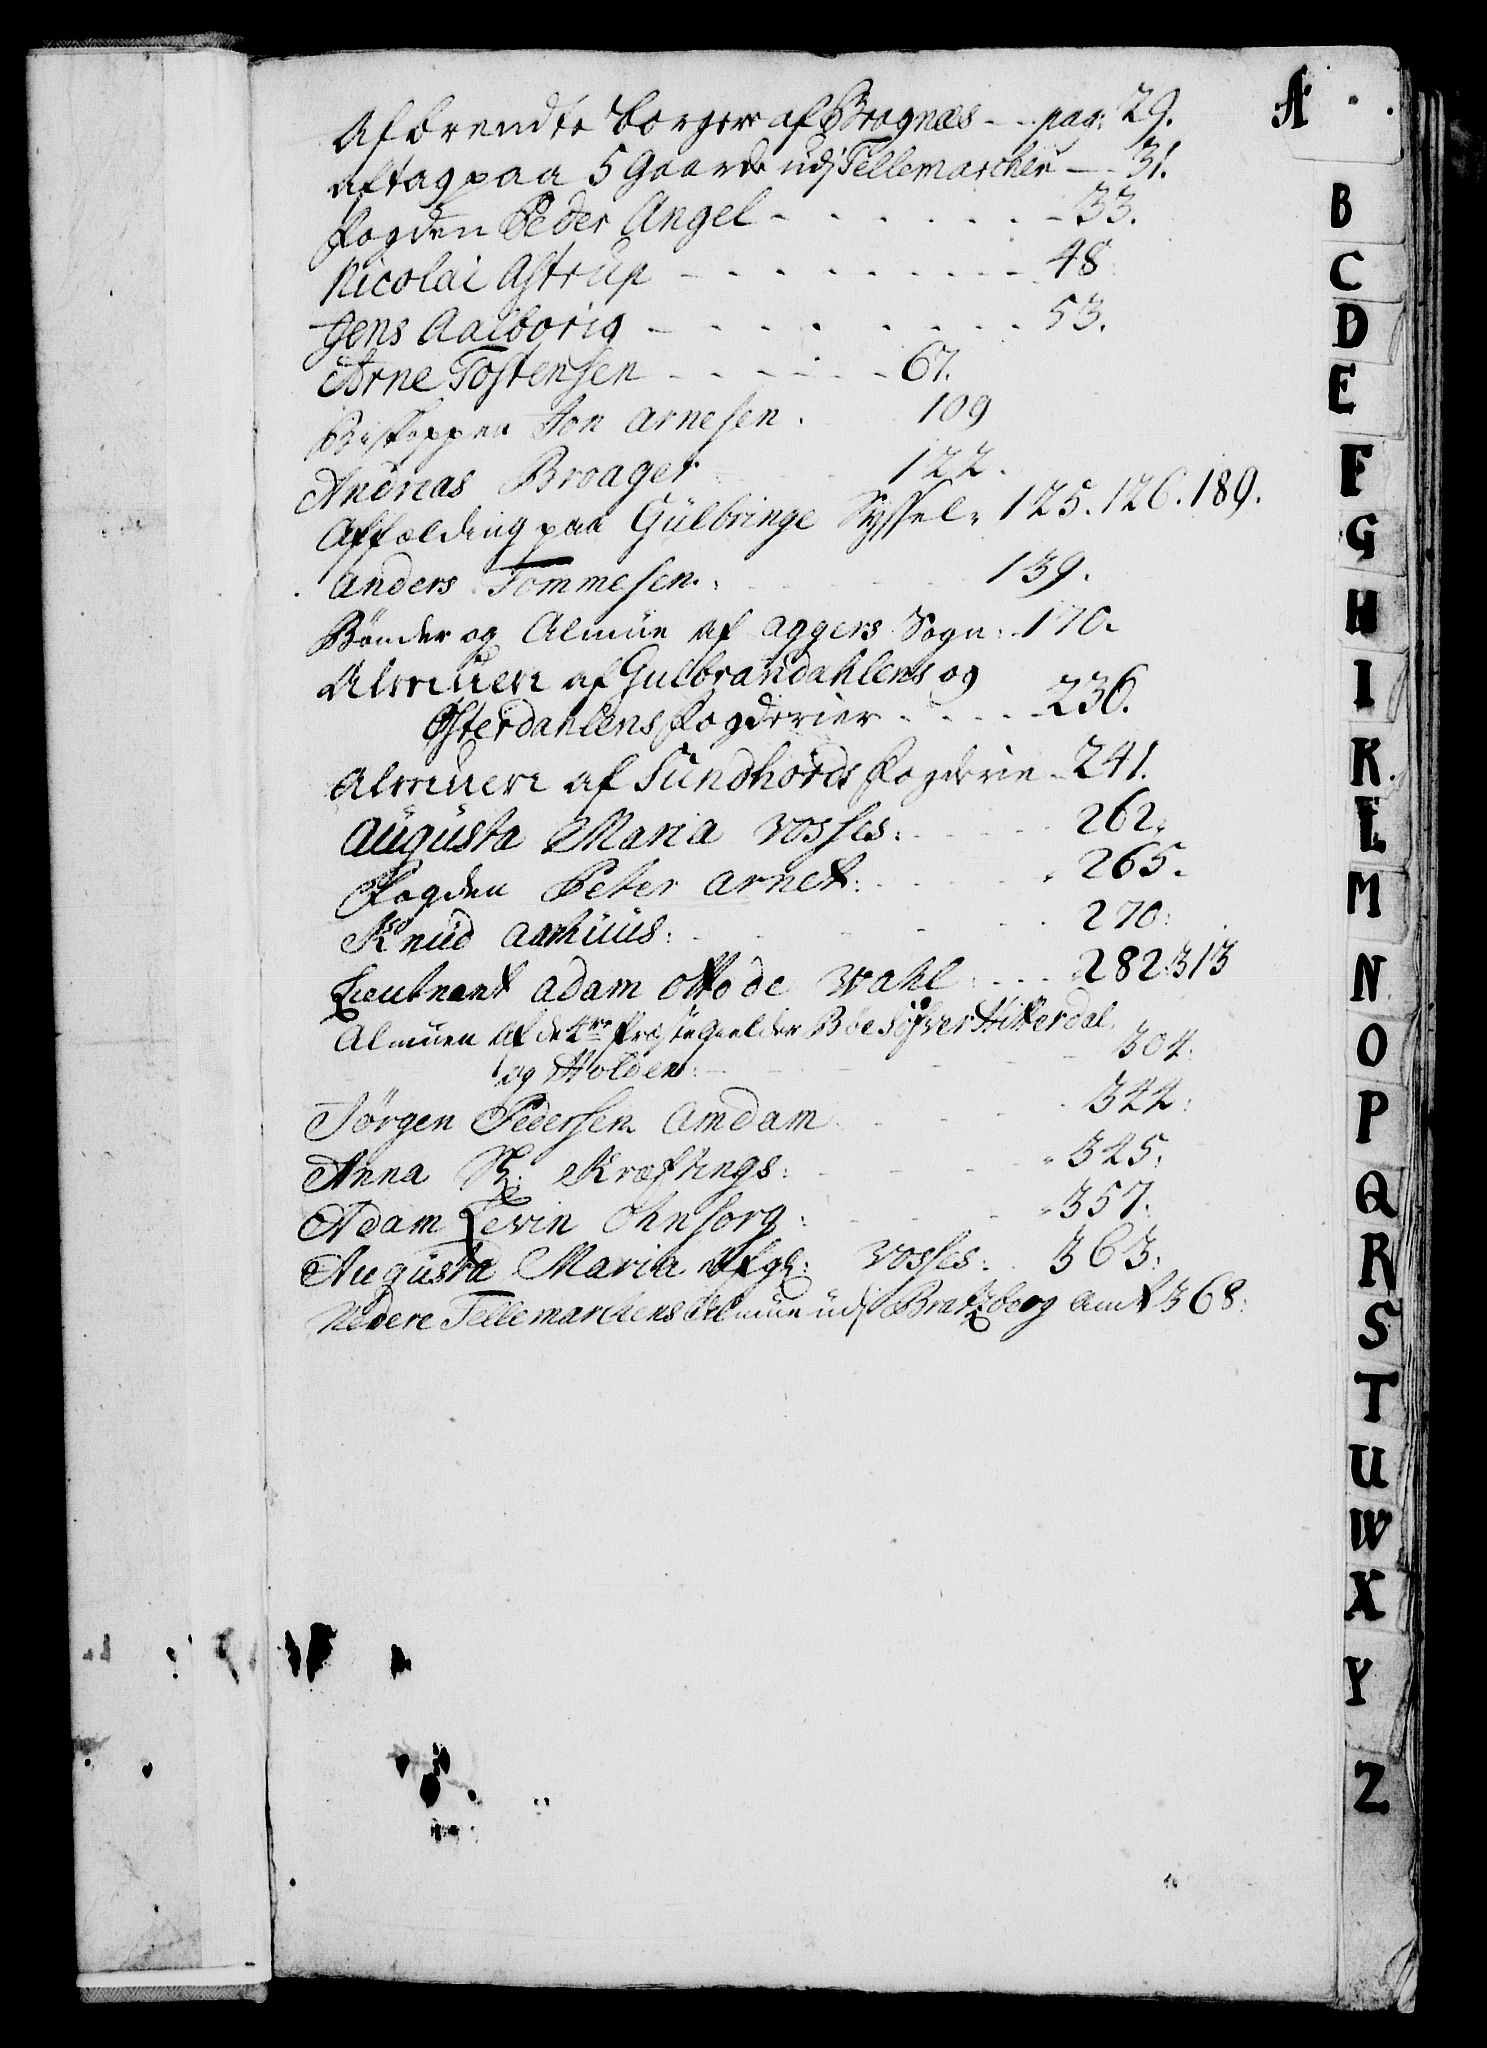 A
Afbrendte borgere af Bragnæs - - pag: 29.
aftag paa 5 Gaarde udj Tellemarchen - - 31.
fogden Peder Angel - - - - - - - 33.
Nicolai Astrup - - - - - - - - - 48
Jens Aalborig - - - - - - - - - 53.
Arne Tostensen - - - - - - 67.
Biskoppen Jon Arnesen. 109
Andreas Broager 122.
Affælding paa Gülbringe Syssel. 125. 126. 189.
Anders Tommesen. 139.
Bønder og Almüe af aggers Sogn: 170.
Almuen af Gulbrandahlens og
Østerdahlens fogderier - - - - 236.
Almuen af Sundhords fogderie - 241.
Augüsta Maria Vosses: 262.
Fogden Peter Arnet: 265.
Knud Aarhuus: 270:
Lieutnant Adam Otto de Wahl: 282: 313
Almüen af de 4re Præstegielder Bøe Søfver Hitterdal
og Holden: 304:
Jörgen Pedersen Amdam 322:
Anna Kræftings: 345:
Adam Levin Ohnsorg: 357:
Augüsta Maria afg: Vosses: 363:
Nedere Tellemarchens Almüe udj Bratzberg Amt 368:
B
C
D
E
F
G
H
I
K
L
M
N
O
P
Q
R
S
T
U
W
X
Y
Z